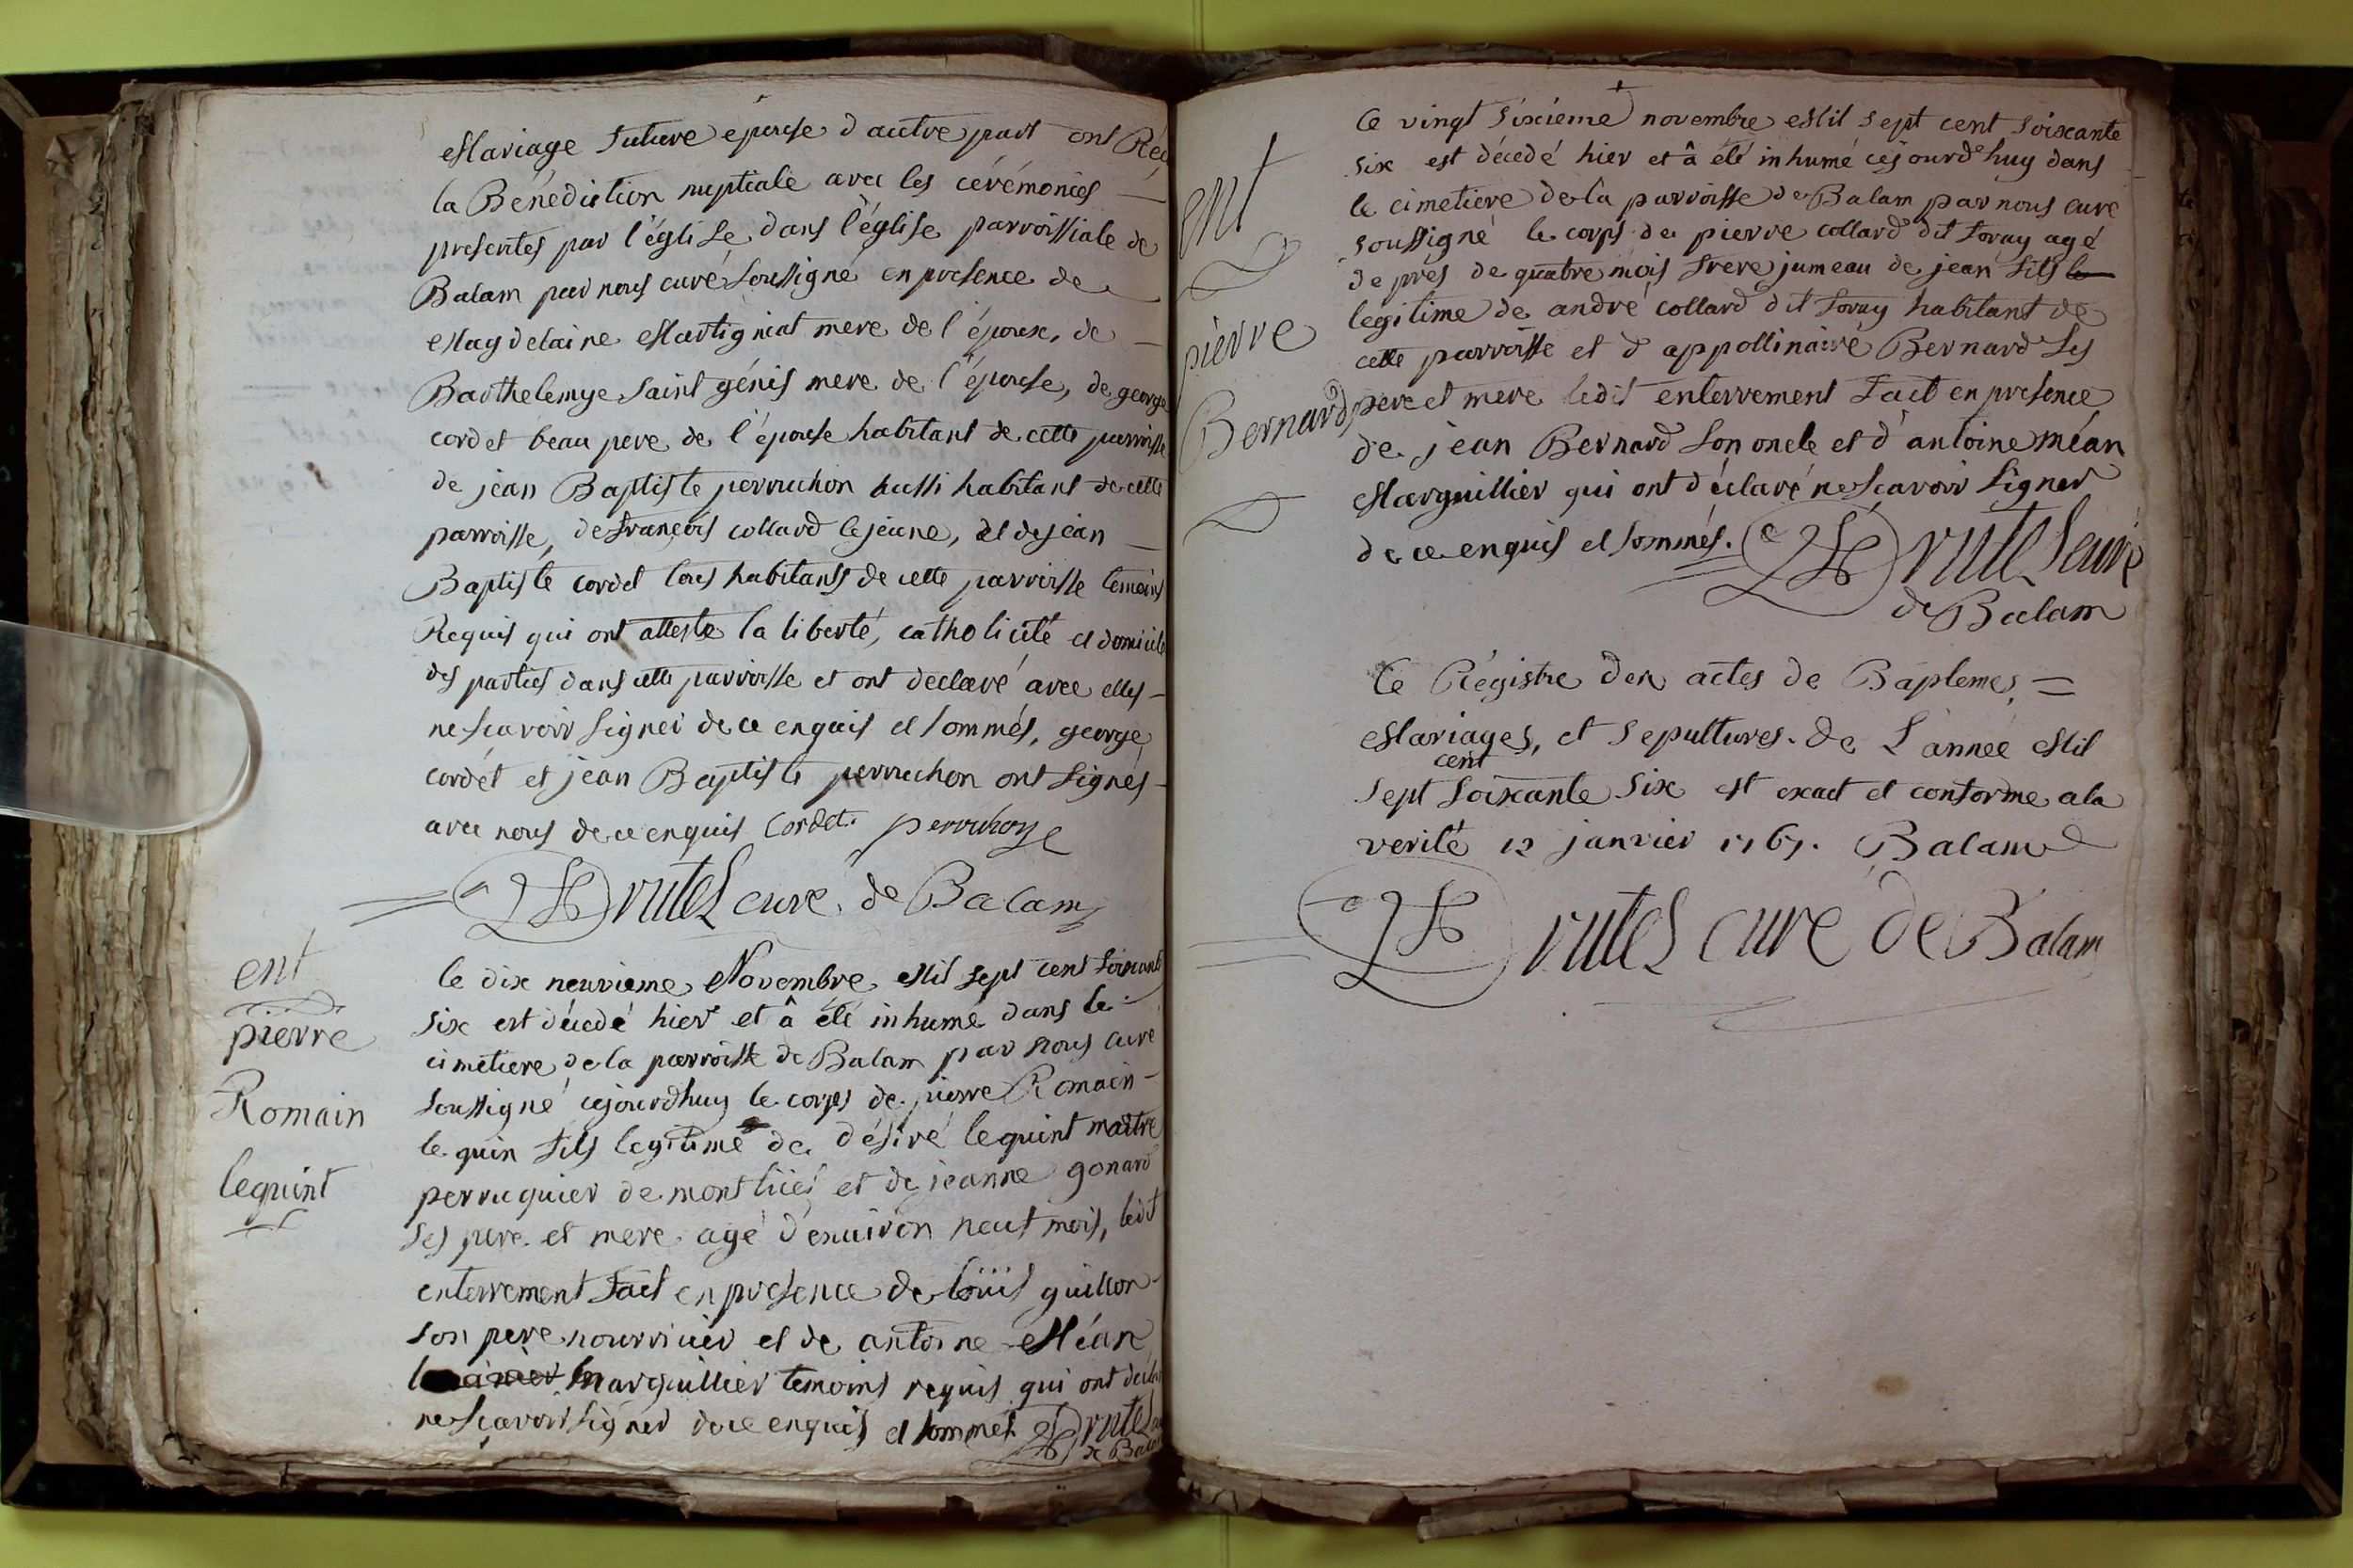 Mariage future epouse d'autre part ont Reçu
la Bénédiction nuptiale avec les cérémonies
presentes par l'église dans l'église parroissiale de
Balam par nous curé soussigné en presence de
Magdelaine Martignat mere de l'époux, de
Barthelemye saint génis mere de l'épouse, de george
cordet beau pere de l'épouse habitant de cette parroisse
de jean Baptiste perruchon aussi habitant de cette
parroisse, de françois collard le jeune, et de jean
Baptiste cordet tous habitants de cette parroisse temoins
Requis qui ont atteste la liberté, catholicité et domicile
des parties dans cette parroisse et ont declaré avec elles
ne sçavoir signer de ce enquis et sommés, george
cordet et jean Baptiste perruchon ont signés
avec nous de ce enquis Cordet. perruchon
Drutel curé de Balam
ent
pierre
Romain
lequint
le dix neuvieme Novembre Mil sept cent soixante
six est décedé hier et â été inhumé dans le
cimetiere de la parroisse de Balam par nous curé
soussigné cejourdhuy le corps de pierre Romain
le quin fils legitime de désiré lequint maitre
perruquier de montluel et de jeanne gonard
ses pere et mere agé d'environ neuf mois, ledit
enterrement fait en presence de loüis guillon
son pere nourricier et de antoine Méan
Marguillier temoins requis qui ont declaré
ne sçavoir signer de ce enquis et sommés Drutel
de Balam
ent
pierre
Bernard
Ce vingt sixiéme novembre Mil sept cent soixante
six est décedé hier et â été inhumé cejourd'huy dans
le cimetiere de la parroisse de Balam par nous curé
soussigné le corps de pierre collard dit foray agé
de prés de quatre mois frere jumeau de jean fils
legitime de andré collard dit foray habitant de
cette parroisse et d'appollinaire Bernard ses
pere et mere ledit enterrement fait en presence
de jean Bernard son oncle et d'antoine méan
Marguillier qui ont déclaré ne sçavoir signer
de ce enquis et sommés. Drutel curé
de Balam
Ce Régistre des actes de Baptemes,
Mariages, et sepultures de L'année Mil
sept cent soixante six est exact et conforme a la
verité 12 janvier 1767. Balam
Drutel curé de Balam